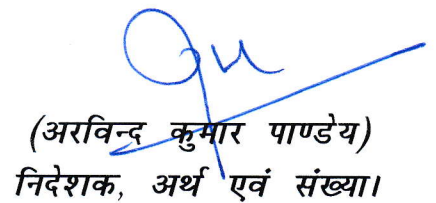 (अरविन्द कुमार पाण्डेय)
निदेशक, अर्थ एवं संख्या।